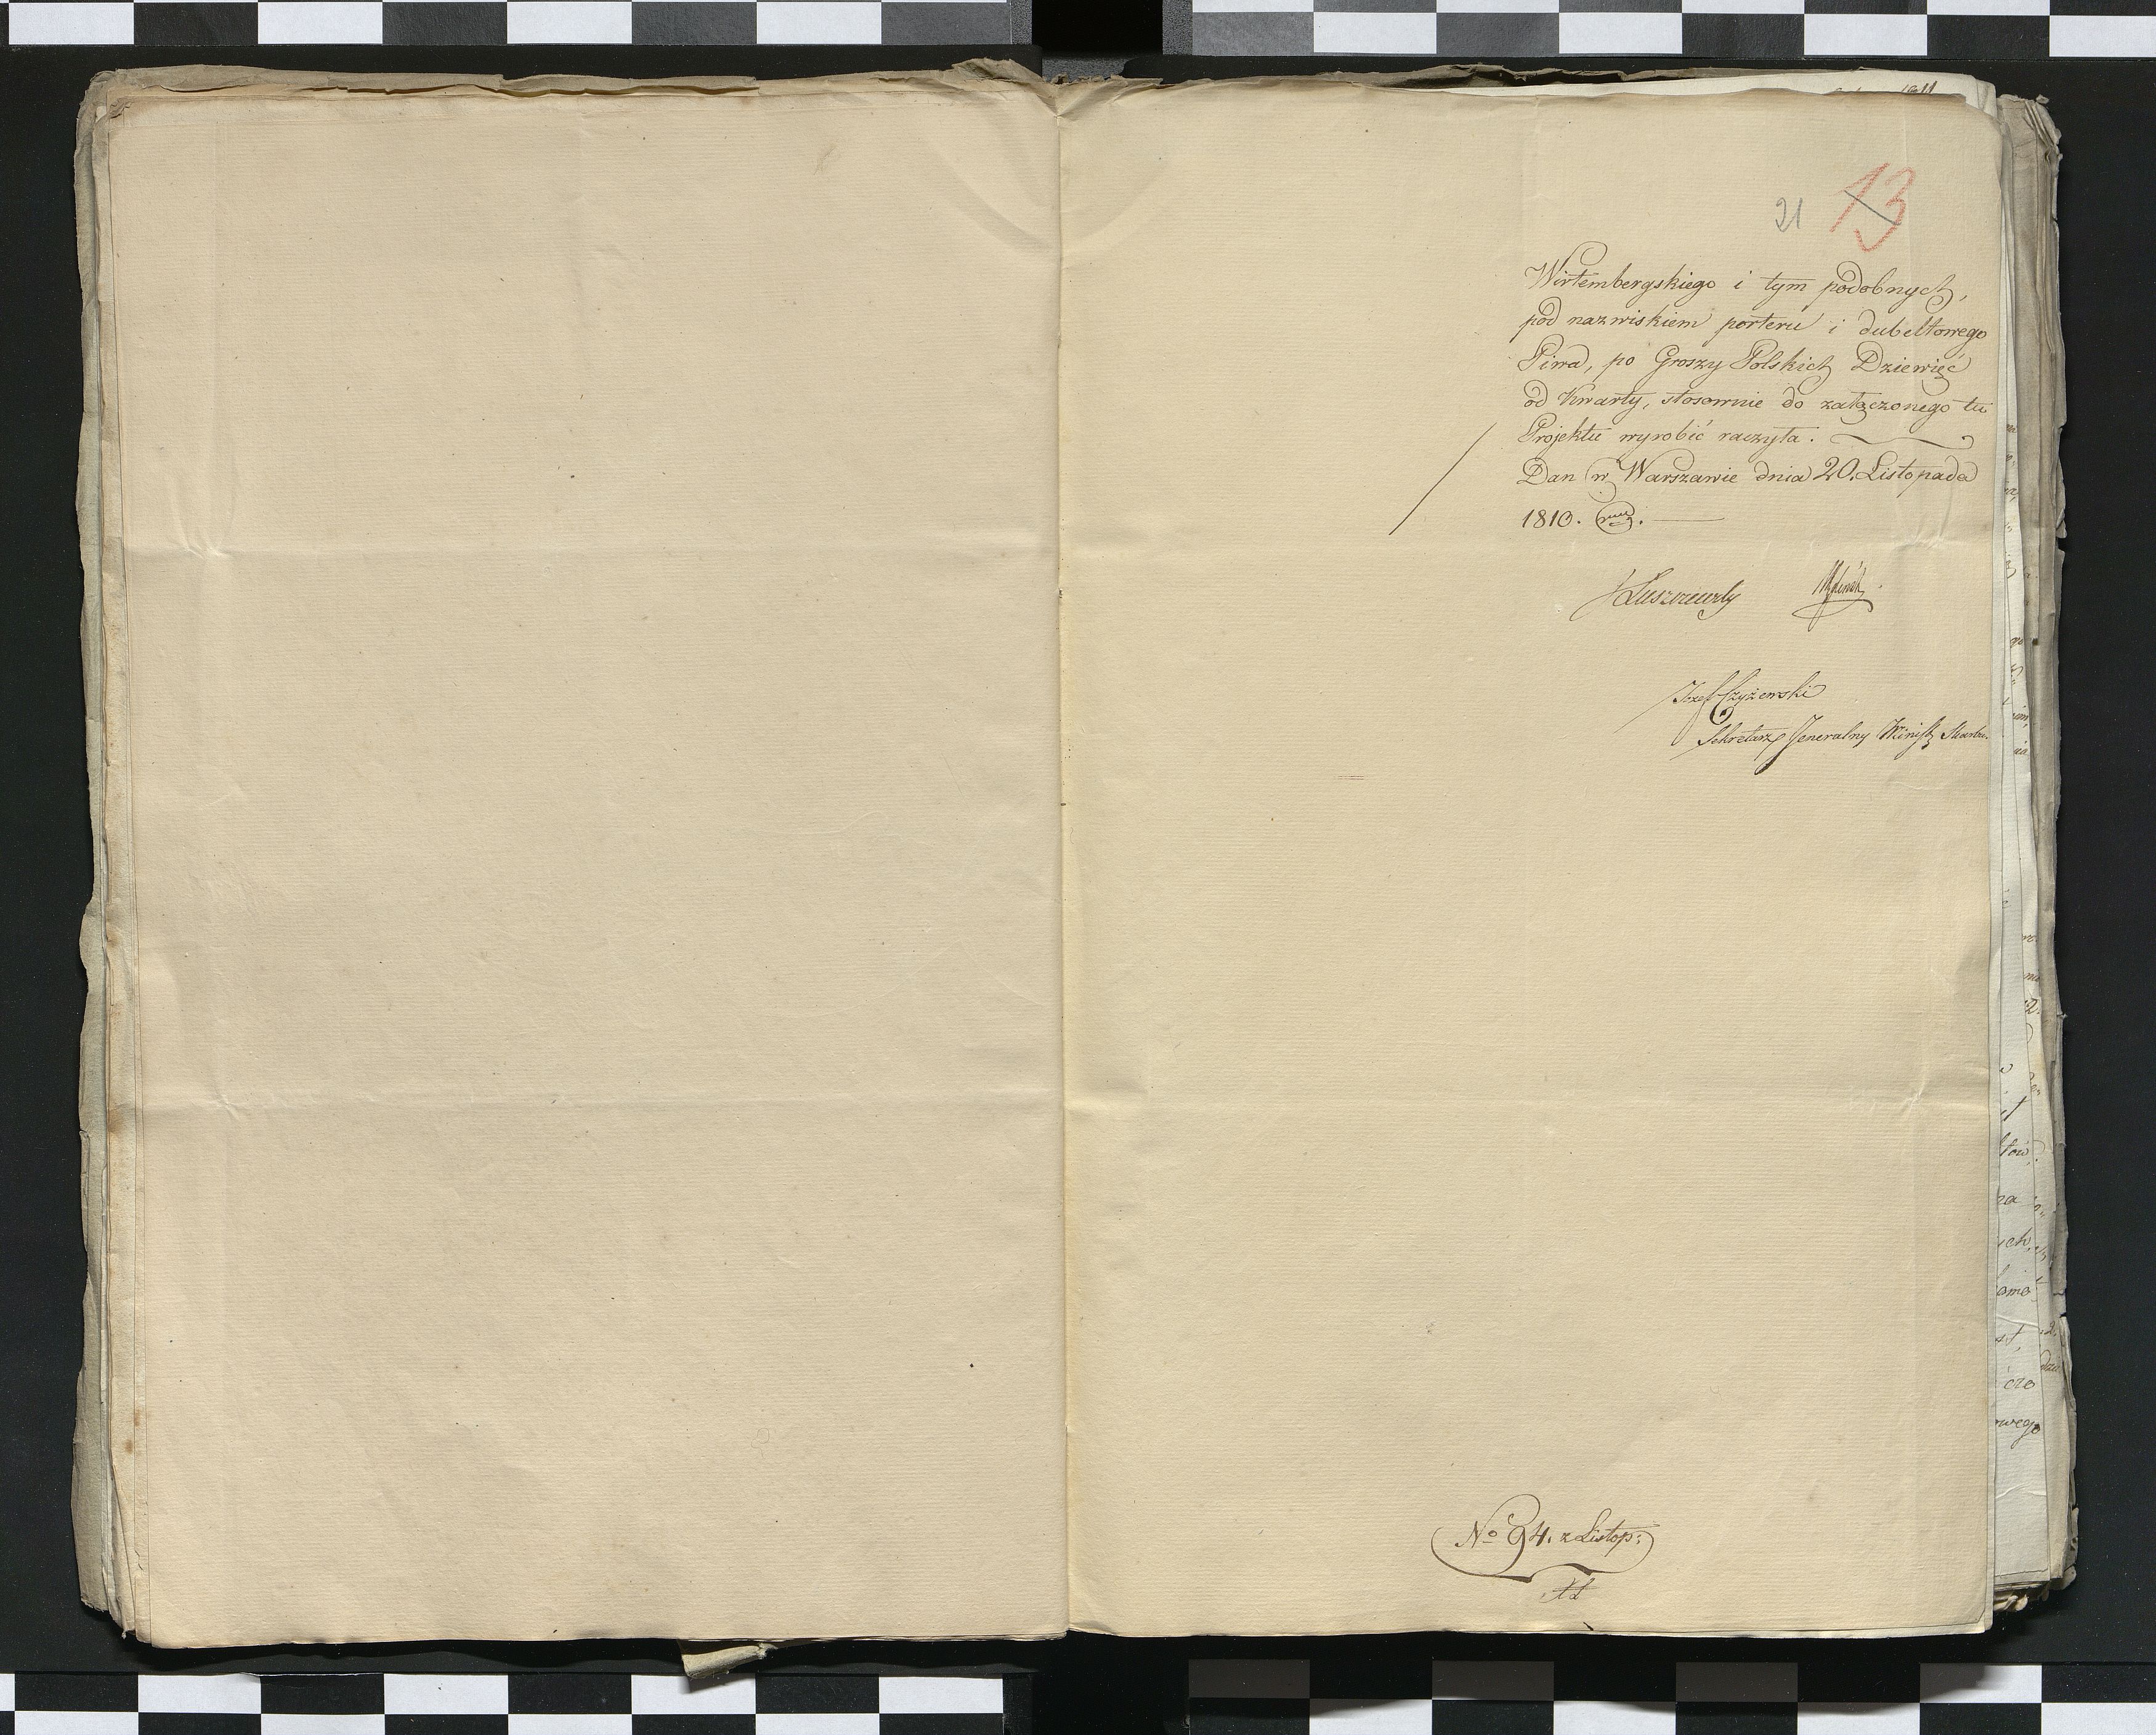 21 13
Wirtembergskiego i tym podobnych,
pod nazwiskiem porteru i dubeltowego
Piwa, po Groszy Polskich Dziewięć
od Kwarty, stosownie do załączonego tu
Projektu wyrobić raczyła.
Dan w Warszawie dnia 20. Listopada
1810.
Łuszczewsky
Józef Czyżewski
Sekretarz Jeneralny Minist Skarbu.
No 94. z Listop: